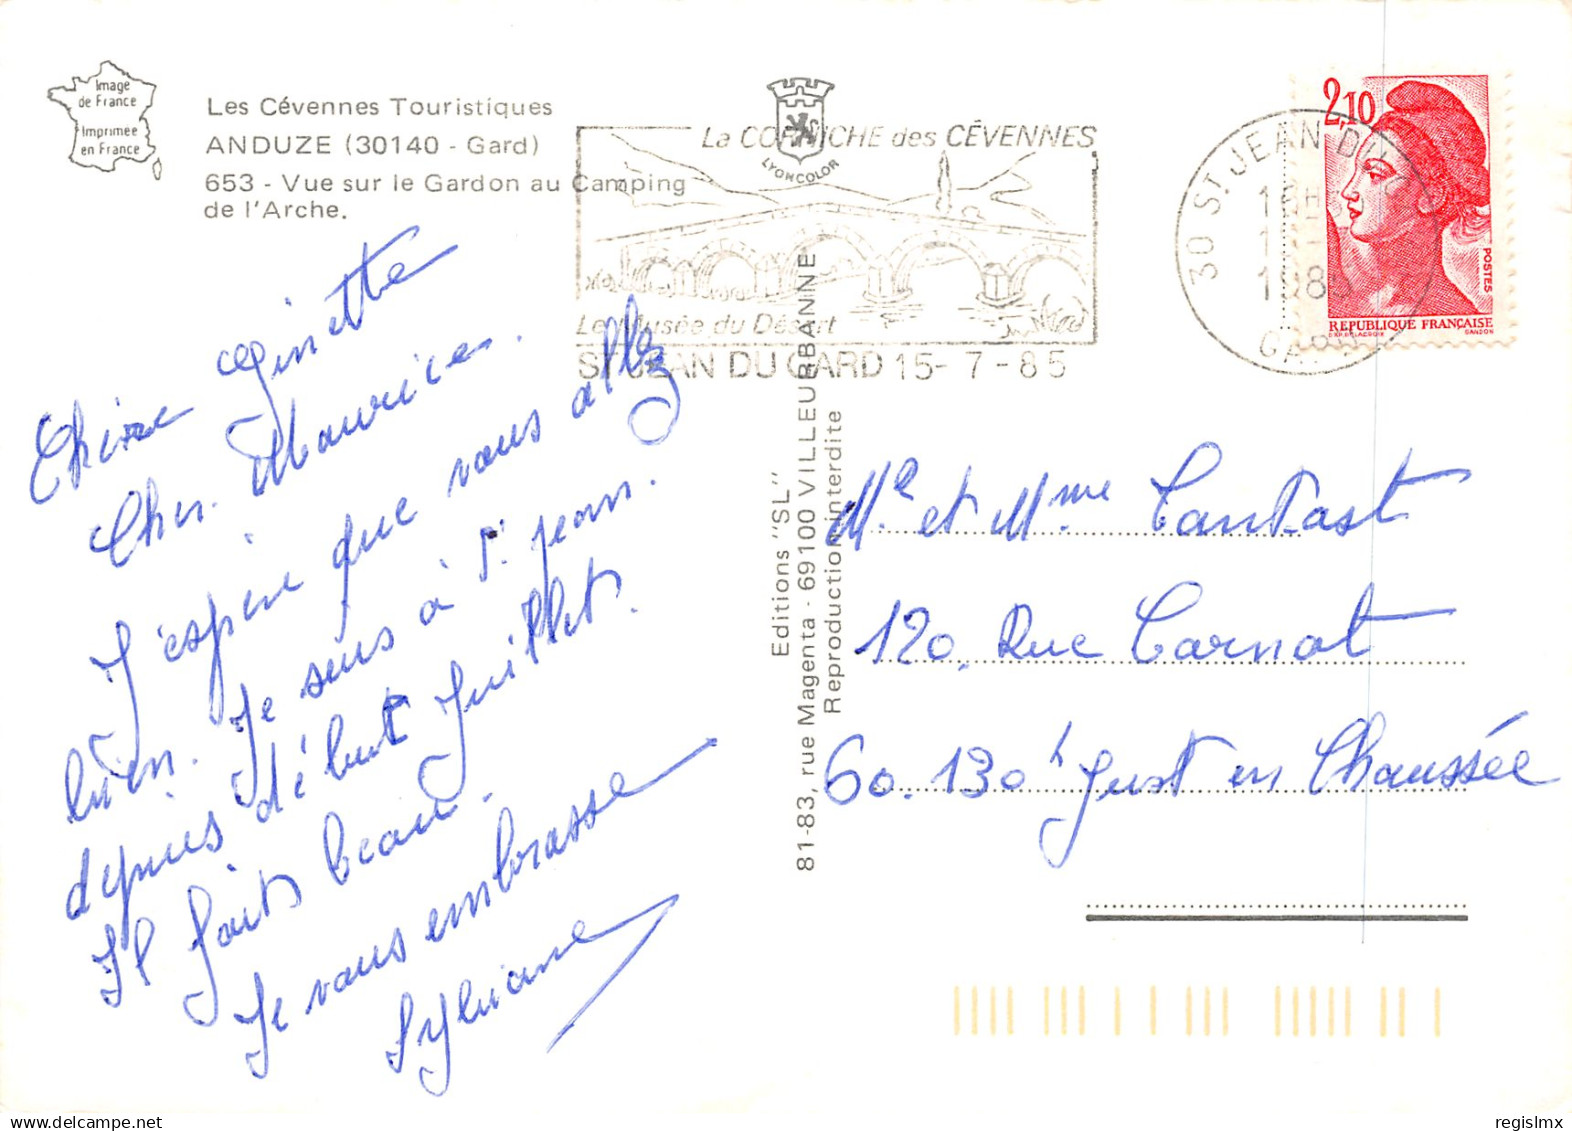 Image
de France
Imprimée
en France
Les Cévennes Touristiques
ANDUZE (30140 - Gard)
653 - Vue sur le Gardon au Camping
de l'Arche.
LYONCOLOR
La CORNICHE des CÉVENNES
Le Musée du Désert
ST JEAN DU GARD 15-7-85
30 ST JEAN DU
16H
1985
GARD
2,10
POSTES
REPUBLIQUE FRANÇAISE
GANDON
Chère Ginette
Cher Maurice.
J'espère que vous allez
bien. Je suis à St Jean.
depuis début Juillet.
Il fait beau.
Je vous embrasse
Sylviane
Editions "SL"
81-83, rue Magenta - 69100 VILLEURBANNE
Reproduction interdite
Mr et Mme Tantast
120, Rue Carnot
60.130 St Just en Chaussée
regislmx